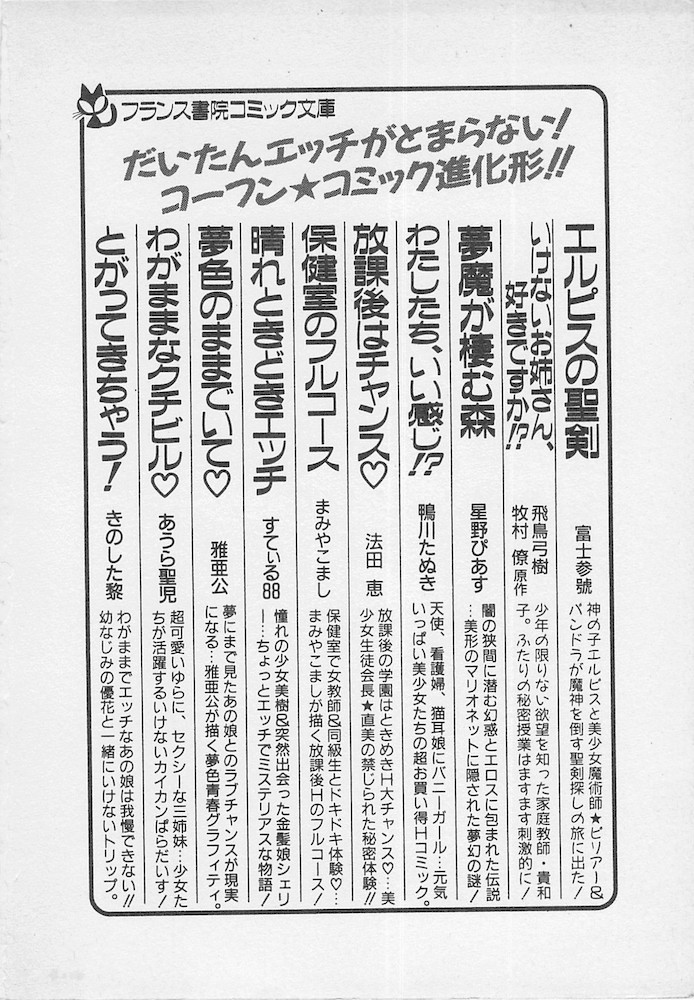 フランス書院コミック文庫
だいたんエッチがとまらない!
コーフン★コミック進化形!!
エルピスの聖剣
富士参號
神の子エルピスと美少女魔術師★ピリアー&
パンドラが魔神を倒す聖剣探しの旅に出た!
いけないお姉さん、
好きですか!?
飛鳥弓樹
牧村 僚 原作
少年の限りない欲望を知った家庭教師・貴和
子。ふたりの秘密授業はますます刺激的に!
夢魔が棲む森
星野ぴあす
闇の狭間に潜む幻惑とエロスに包まれた伝説
…美形のマリオネットに隠された夢幻の謎!
わたしたち、いい感じ!?
鴨川たぬき
天使、看護婦、猫耳娘にバニーガール…元気
いっぱい美少女たちの超お買い得Hコミック。
放課後はチャンス♡
法田 恵
放課後の学園はときめきH大チャンス♡…美
少女生徒会長★直美の禁じられた秘密体験!!
保健室のフルコース
まみやこまし
保健室で女教師&同級生とドキドキ体験♡…
まみやこましが描く放課後Hのフルコース!
晴れときどきエッチ
すてぃる88
憧れの少女美樹&突然出会った金髪娘シェリ
ー…ちょっとエッチでミステリアスな物語!
夢色のままでいて♡
雅亜公
夢にまで見たあの娘とのラブチャンスが現実
になる…雅亜公が描く夢色青春グラフィティ。
わがままなクチビル♡
あうら聖児
超可愛いゆらに、セクシーな三姉妹…少女た
ちが活躍するいけないカイカンぱらだいす!
とがってきちゃう!
きのした黎
わがままでエッチなあの娘は我慢できない!!
幼なじみの優花と一緒にいけないトリップ。